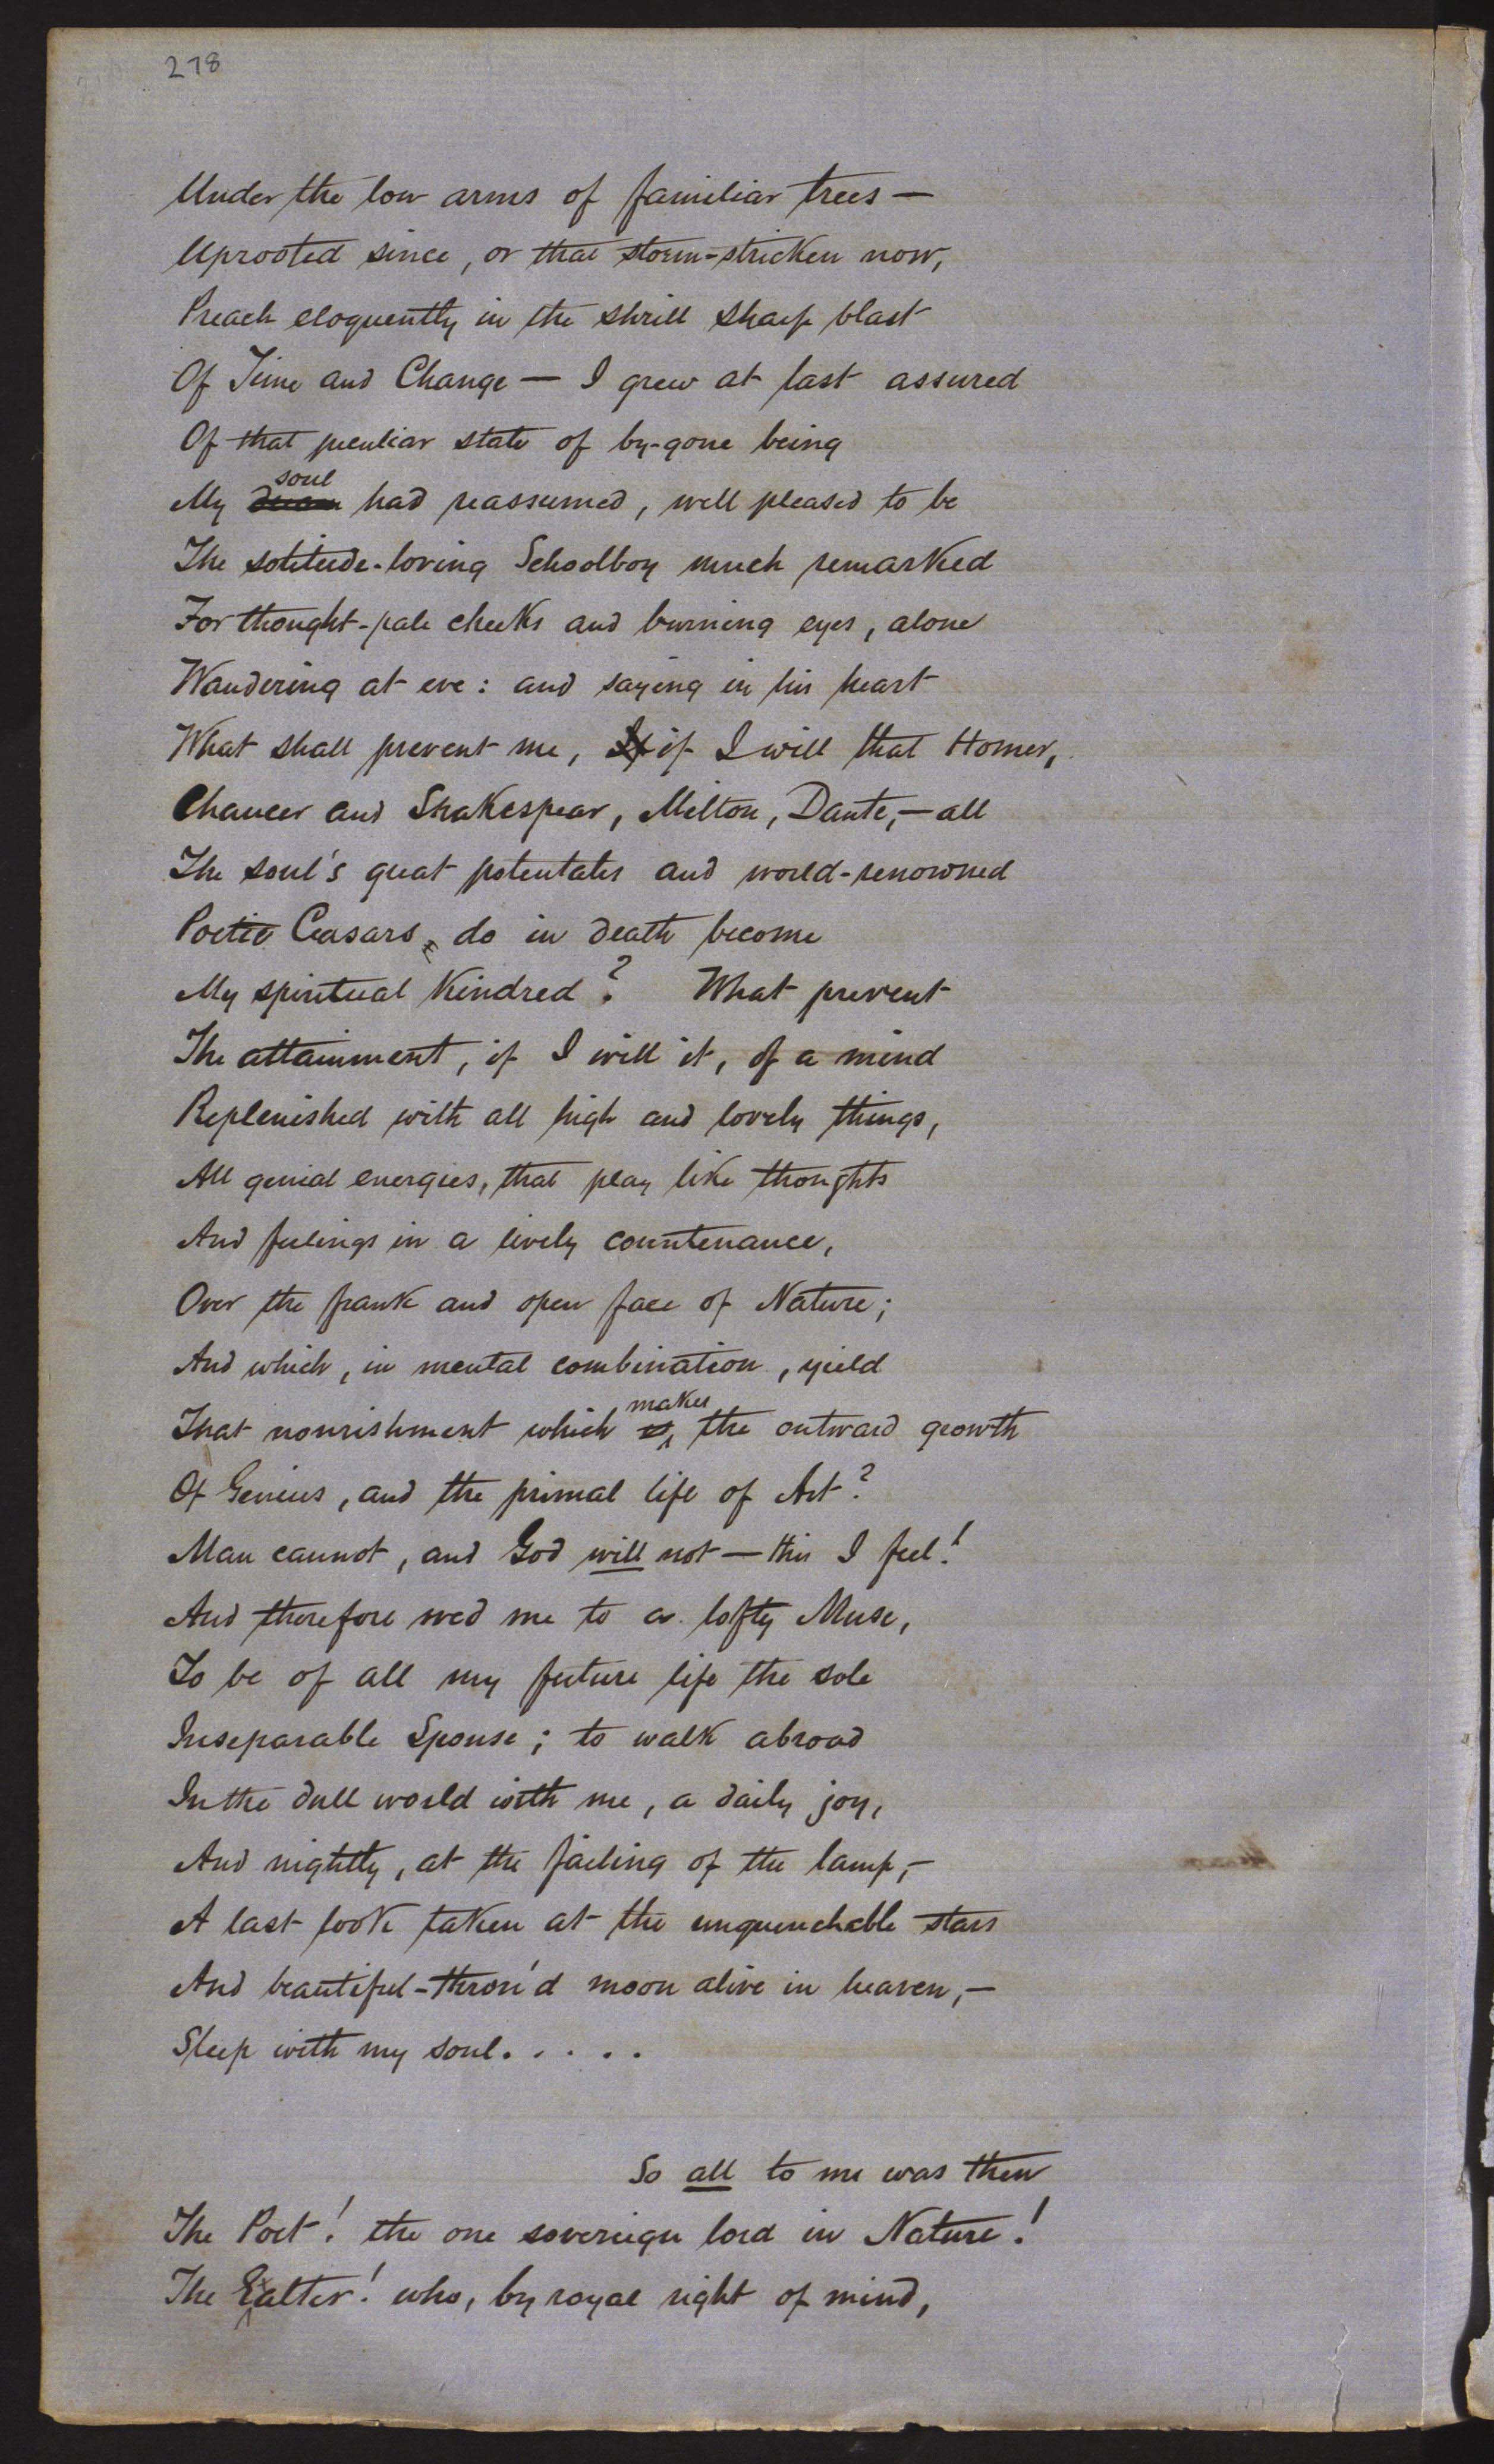 278
Under the low arms of familiar trees —
Uprooted since, or that storm-stricken now,
Preach eloquently in the shrill sharp blast
Of Time and Change — I grew at last assured
Of that peculiar state of by-gone being
soul
My had reassumed, well pleased to be
The solitude-loving Schoolboy much remarked
For thought-pale cheeks and burning eyes, alone
Wandering at eve: and saying in his heart
What shall prevent me, if I will that Homer,
Chaucer and Shakespear, Milton, Dante, — all
The soul's great potentates and world-renowned
Poetic Ceasars, do in death become
My spiritual Kindred? What prevent
The attainment, if I will it, of a mind
Replenished with all high and lovely things,
All genial energies, that play like thoughts
And feelings in a lively countenance,
Over the frank and open face of Nature;
And which, in mental combination, yield
makes
That nourishment which the outward growth
Of Genius, and the primal life of Art?
Man cannot, and God will not — this I feel!
And therefore wed me to a lofty Muse,
To be of all my future life the sole
Inseparable Spouse; to walk abroad
In the dull world with me, a daily joy,
And nightly, at the failing of the lamp, —
A last look taken at the unquenchable stars
And beautiful-thron'd moon alive in heaven, —
Sleep with my soul. . . . .
So all to me was then
The Poet! the one sovereign lord in Nature!
The Exalter! who, by royal right of mind,